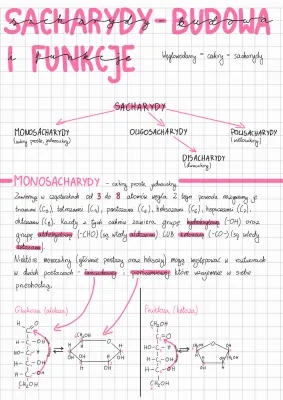 SACHARYDY - BUDOWA
budowa
I FUNKCJE
i funkcje
Węglowodany = cukry = sacharydy
SACHARYDY
MONOSACHARYDY
(cukry proste, jednocukry)
OLIGOSACHARYDY
POLISACHARYDY
(wielocukry)
DISACHARYDY
(dwucukry)
MONOSACHARYDY - cukry proste, jednocukry.
Zawierają w cząsteczkach od 3 do 8 atomów węgla. Z tego powodu nazywamy je
triozami (C₃), tetrozami (C₄), pentozami (C₅), heksozami (C₆), heptozami (C₇),
oktozami (C₈). Każdy z tych cukrów zawiera grupę hydroksylową (-OH) oraz
grupę aldehydową (-CHO) (są wtedy aldozami) LUB ketonową (-CO-) (są wtedy
ketozami).
Niektóre monocukry (głównie pentozy oraz heksozy) mogą występować w roztworach
w dwóch postaciach - łańcuchowej i pierścieniowej, które wzajemnie w siebie
przechodzą.
Glukoza (aldoza)
Fruktoza (ketoza)
CH₂OH
CH₂OH
CH₂OH